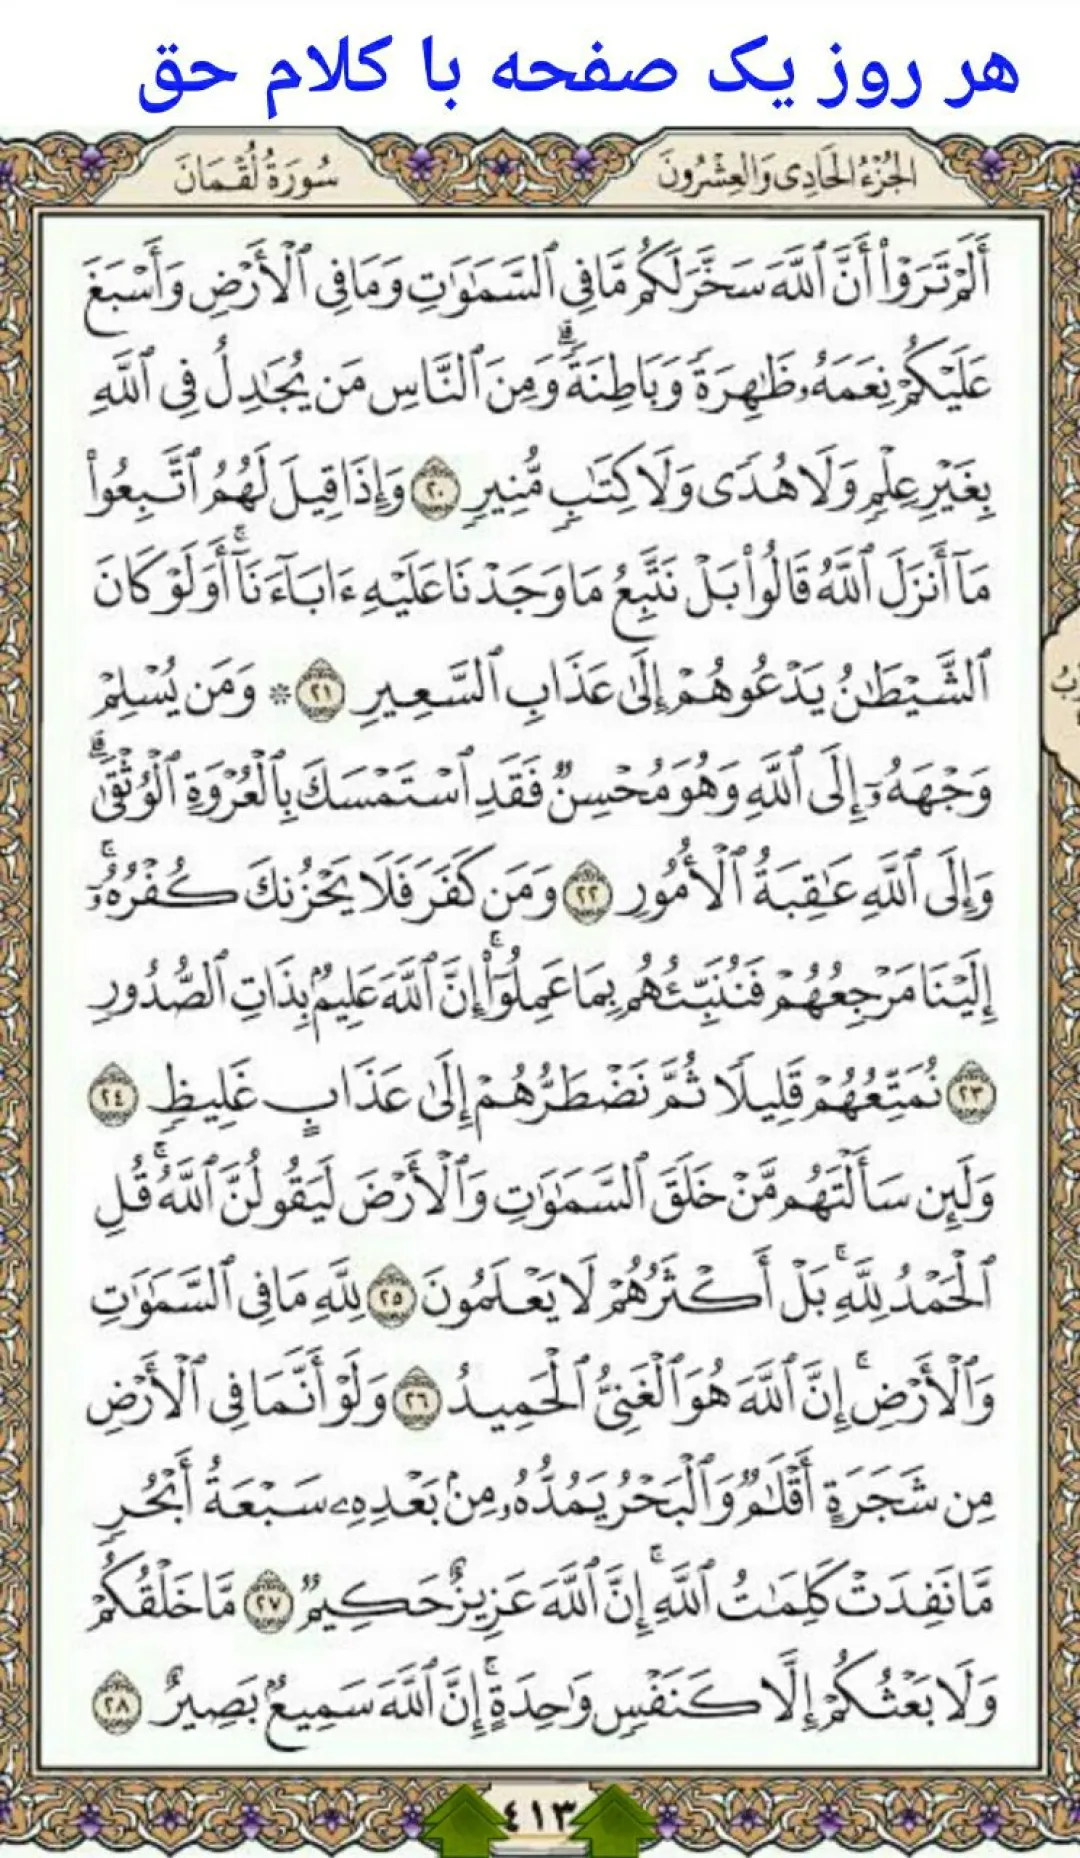 هر روز یک صفحه با کلام حق
الجُزْءُ الحَادِى وَالعِشْرُونَ
سُورَةُ لُقْمَانَ
أَلَمْ تَرَوْا۟ أَنَّ ٱللَّهَ سَخَّرَ لَكُم مَّا فِى ٱلسَّمَـٰوَٰتِ وَمَا فِى ٱلْأَرْضِ وَأَسْبَغَ
عَلَيْكُمْ نِعَمَهُۥ ظَـٰهِرَةً وَبَاطِنَةً ۗ وَمِنَ ٱلنَّاسِ مَن يُجَـٰدِلُ فِى ٱللَّهِ
بِغَيْرِ عِلْمٍ وَلَا هُدًى وَلَا كِتَـٰبٍ مُّنِيرٍ ٢٠ وَإِذَا قِيلَ لَهُمُ ٱتَّبِعُوا۟
مَآ أَنزَلَ ٱللَّهُ قَالُوا۟ بَلْ نَتَّبِعُ مَا وَجَدْنَا عَلَيْهِ ءَابَآءَنَآ ۚ أَوَلَوْ كَانَ
ٱلشَّيْطَـٰنُ يَدْعُوهُمْ إِلَىٰ عَذَابِ ٱلسَّعِيرِ ٢١ * وَمَن يُسْلِمْ
وَجْهَهُۥٓ إِلَى ٱللَّهِ وَهُوَ مُحْسِنٌ فَقَدِ ٱسْتَمْسَكَ بِٱلْعُرْوَةِ ٱلْوُثْقَىٰ ۗ
وَإِلَى ٱللَّهِ عَـٰقِبَةُ ٱلْأُمُورِ ٢٢ وَمَن كَفَرَ فَلَا يَحْزُنكَ كُفْرُهُۥٓ ۚ
إِلَيْنَا مَرْجِعُهُمْ فَنُنَبِّئُهُم بِمَا عَمِلُوٓا۟ ۚ إِنَّ ٱللَّهَ عَلِيمٌۢ بِذَاتِ ٱلصُّدُورِ
٢٣ نُمَتِّعُهُمْ قَلِيلًا ثُمَّ نَضْطَرُّهُمْ إِلَىٰ عَذَابٍ غَلِيظٍ ٢٤
وَلَئِن سَأَلْتَهُم مَّنْ خَلَقَ ٱلسَّمَـٰوَٰتِ وَٱلْأَرْضَ لَيَقُولُنَّ ٱللَّهُ ۚ قُلِ
ٱلْحَمْدُ لِلَّهِ ۚ بَلْ أَكْثَرُهُمْ لَا يَعْلَمُونَ ٢٥ لِلَّهِ مَا فِى ٱلسَّمَـٰوَٰتِ
وَٱلْأَرْضِ ۚ إِنَّ ٱللَّهَ هُوَ ٱلْغَنِىُّ ٱلْحَمِيدُ ٢٦ وَلَوْ أَنَّمَا فِى ٱلْأَرْضِ
مِن شَجَرَةٍ أَقْلَـٰمٌ وَٱلْبَحْرُ يَمُدُّهُۥ مِنۢ بَعْدِهِۦ سَبْعَةُ أَبْحُرٍ
مَّا نَفِدَتْ كَلِمَـٰتُ ٱللَّهِ ۚ إِنَّ ٱللَّهَ عَزِيزٌ حَكِيمٌ ٢٧ مَّا خَلْقُكُمْ
وَلَا بَعْثُكُمْ إِلَّا كَنَفْسٍ وَٰحِدَةٍ ۗ إِنَّ ٱللَّهَ سَمِيعٌۢ بَصِيرٌ ٢٨
٤١٣